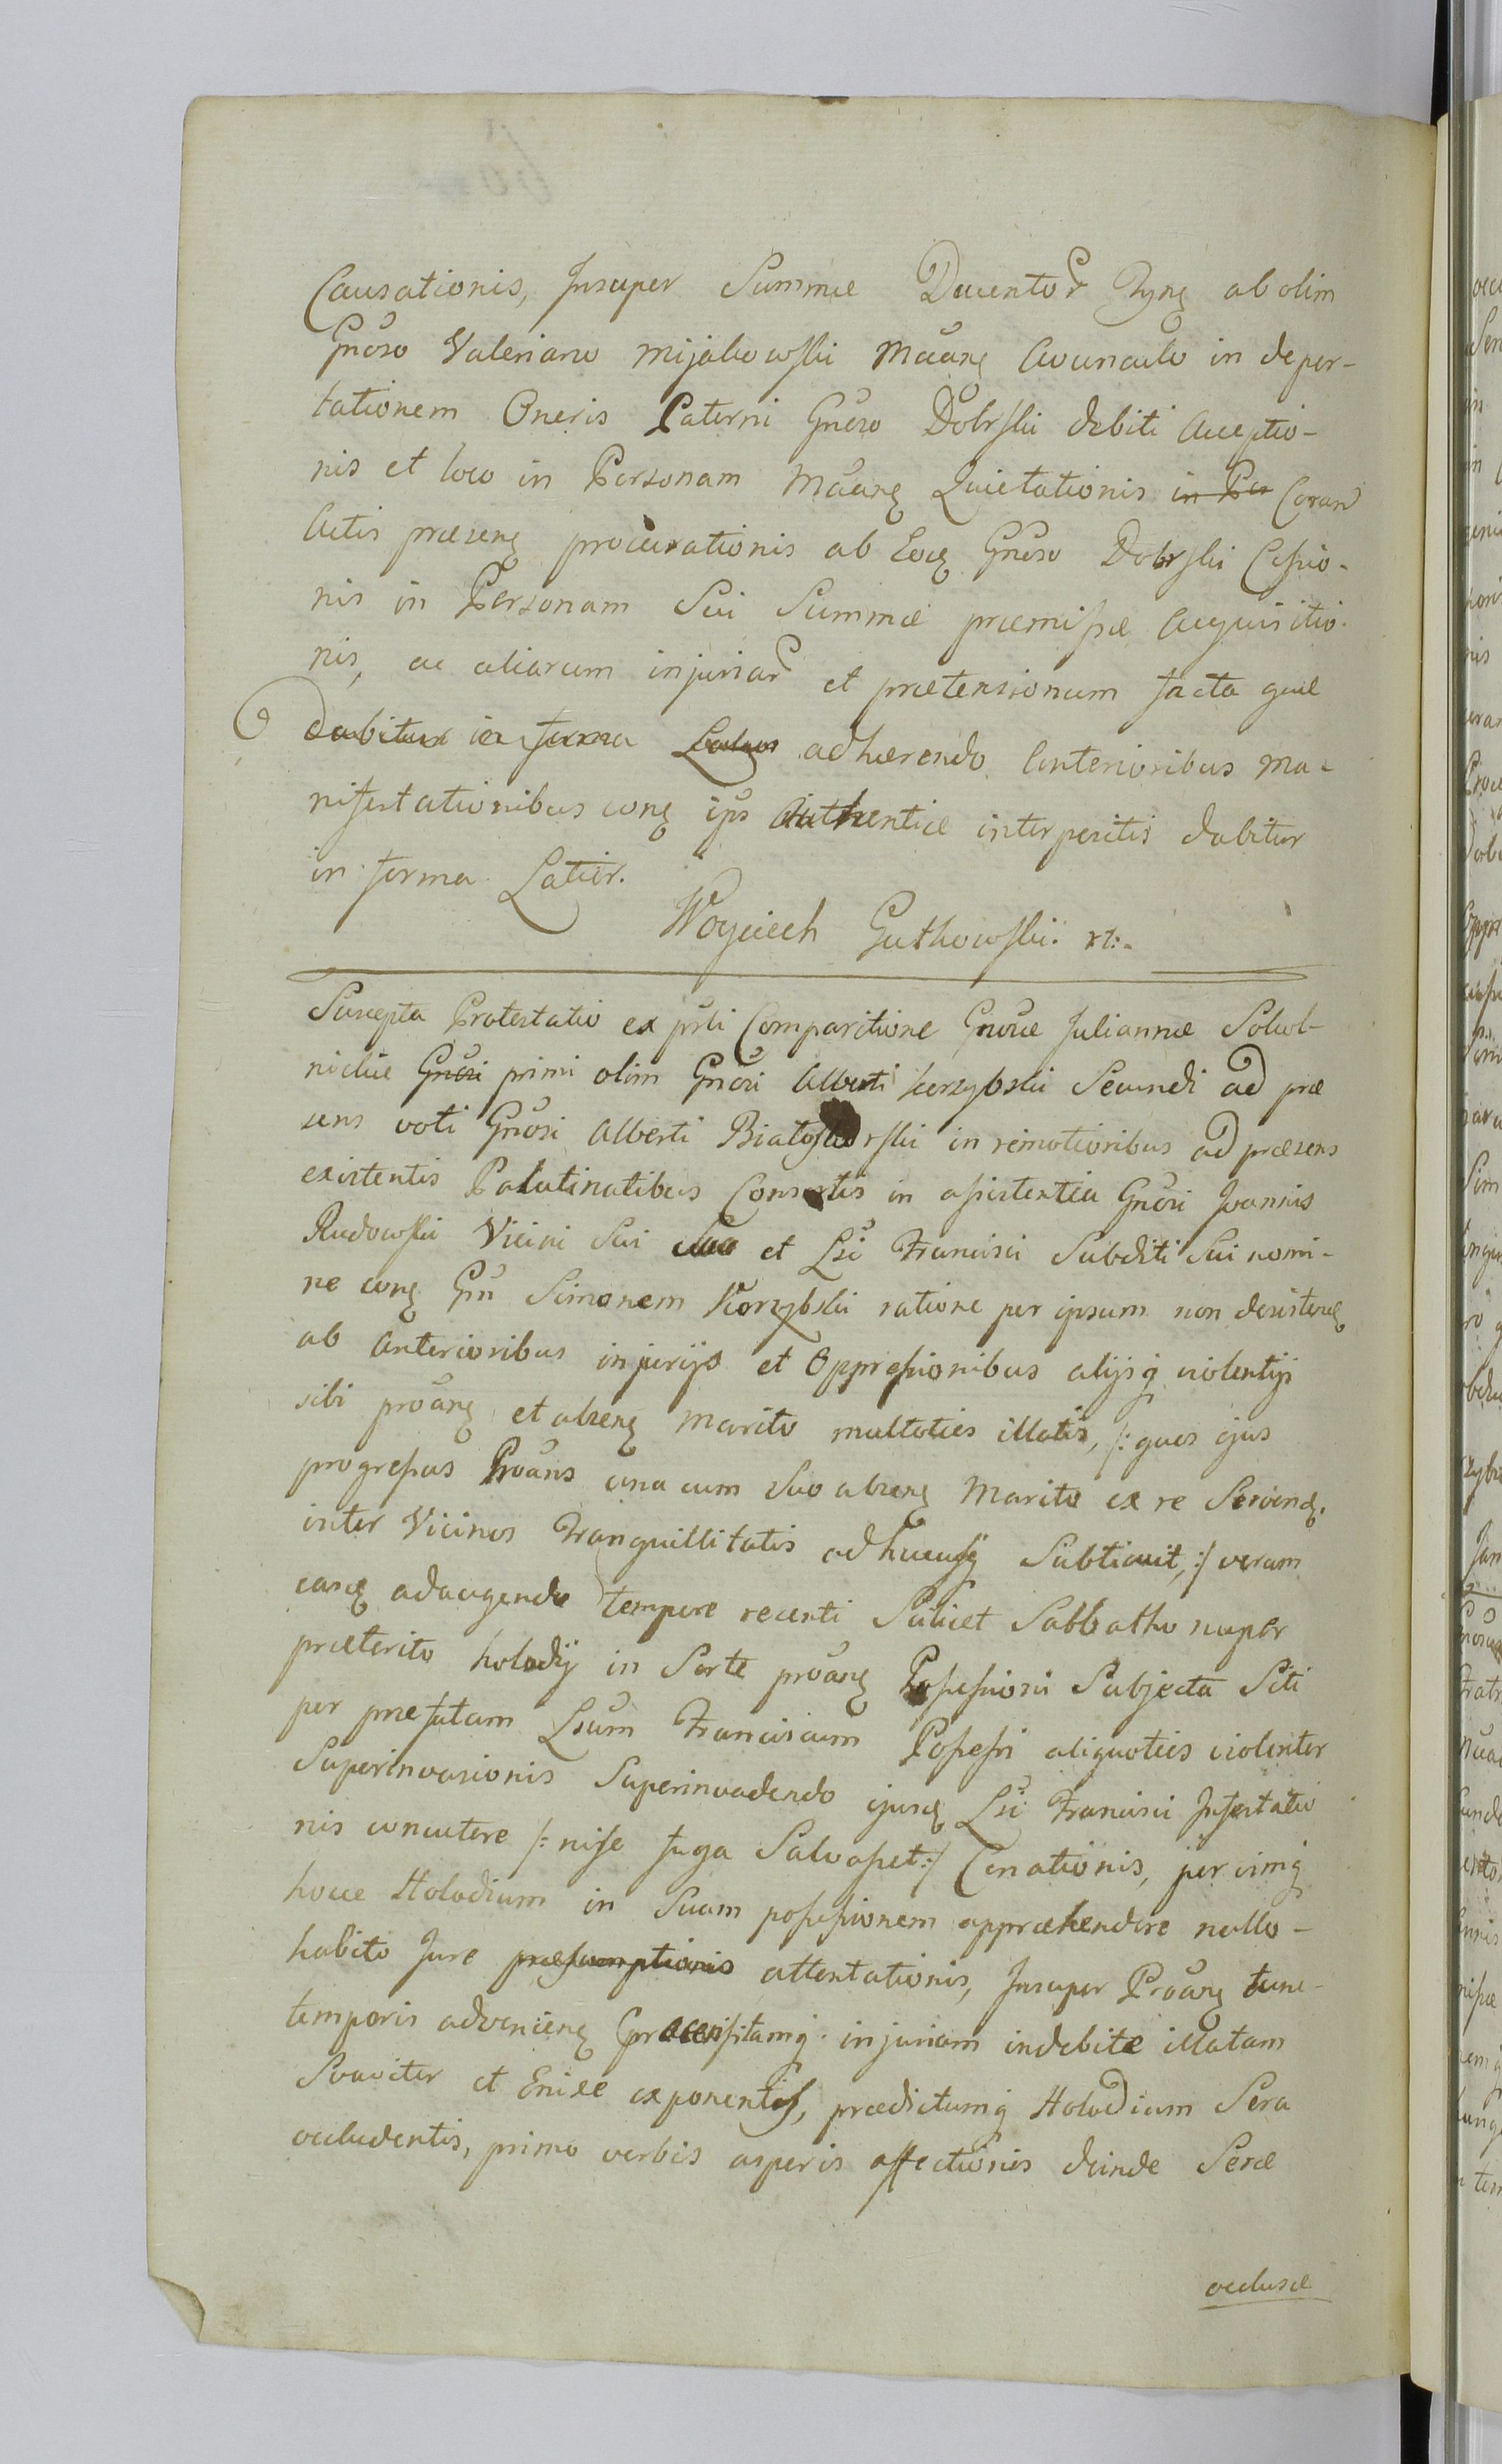 Causationis, Insuper Summæ Ducentor Tyng ab olim
Gnoso Valeriano Mijakowski Maang Avunculo in depor-
tationem Oneris Paterni Gnoso Dobrski debiti Acceptio-
nis et loco in Personam Maang Quietationis in Per Coram
Actis præseng procurationis ab Eoq Gnoso Dobrski Cessio-
nis in Personam Sui Summæ præmissæ Acquisitio-
nis, ac aliarum injuriar et prætensionum facta quæ
dabitur in forma adhærendo Anterioribus Ma-
nifestationibus cong ips Authentice interpositis dabitur
in forma Latior.
Woyciech Gutkowski
Suscepta Protestatio ex prsli Comparitione Gnosæ Juliannæ Sokol-
nickie Gnosi primi olim Gnosi Alberti Korzybski Secundi ad præ
sens voti Gnosi Alberti in remotioribus ad præsens
existentis Palatinatibus Consortis in assistentia Gnosi Joannis
Rudowski Vicini Sui et Lsi Francisci Subditi Sui nomi-
ne cong Gn Simonem Korzybski ratione per ipsum non desisteng
ab Anterioribus injurijs et Oppressionibus alijsq violentijs
sibi proang et abseng Marito multoties illatis, /: quos ejus
progressus Proans una cum Suo abseng Marito ex re Servand.
inter Vicinos Tranquillitatis adhucusq Subticuit, :/ verum
easq adaugendo tempore recenti Scilicet Sabbatho nuper
præterito holodij in Sorte proang Possessioni Subjecta Siti
per præfatam Lsum Franciscum Possessi aliquoties violenter
Superinvasionis Superinvadendo ejusq Lsi Francisci Infestatio
nis concutere /: nise fuga Salvasset :/ Conationis, per vimq
hocce Holodium in Suam possessionem appræhendere nullo-
habito Jure præsumptionis attentationis, Insuper Proang tunc-
temporis advenieng injuriam indebite illatam
Suaviter et Enixe exponentis, prædictumq Holodium Sera
occludentis, primo verbis asperis affectionis deinde Seræ
occlusæ